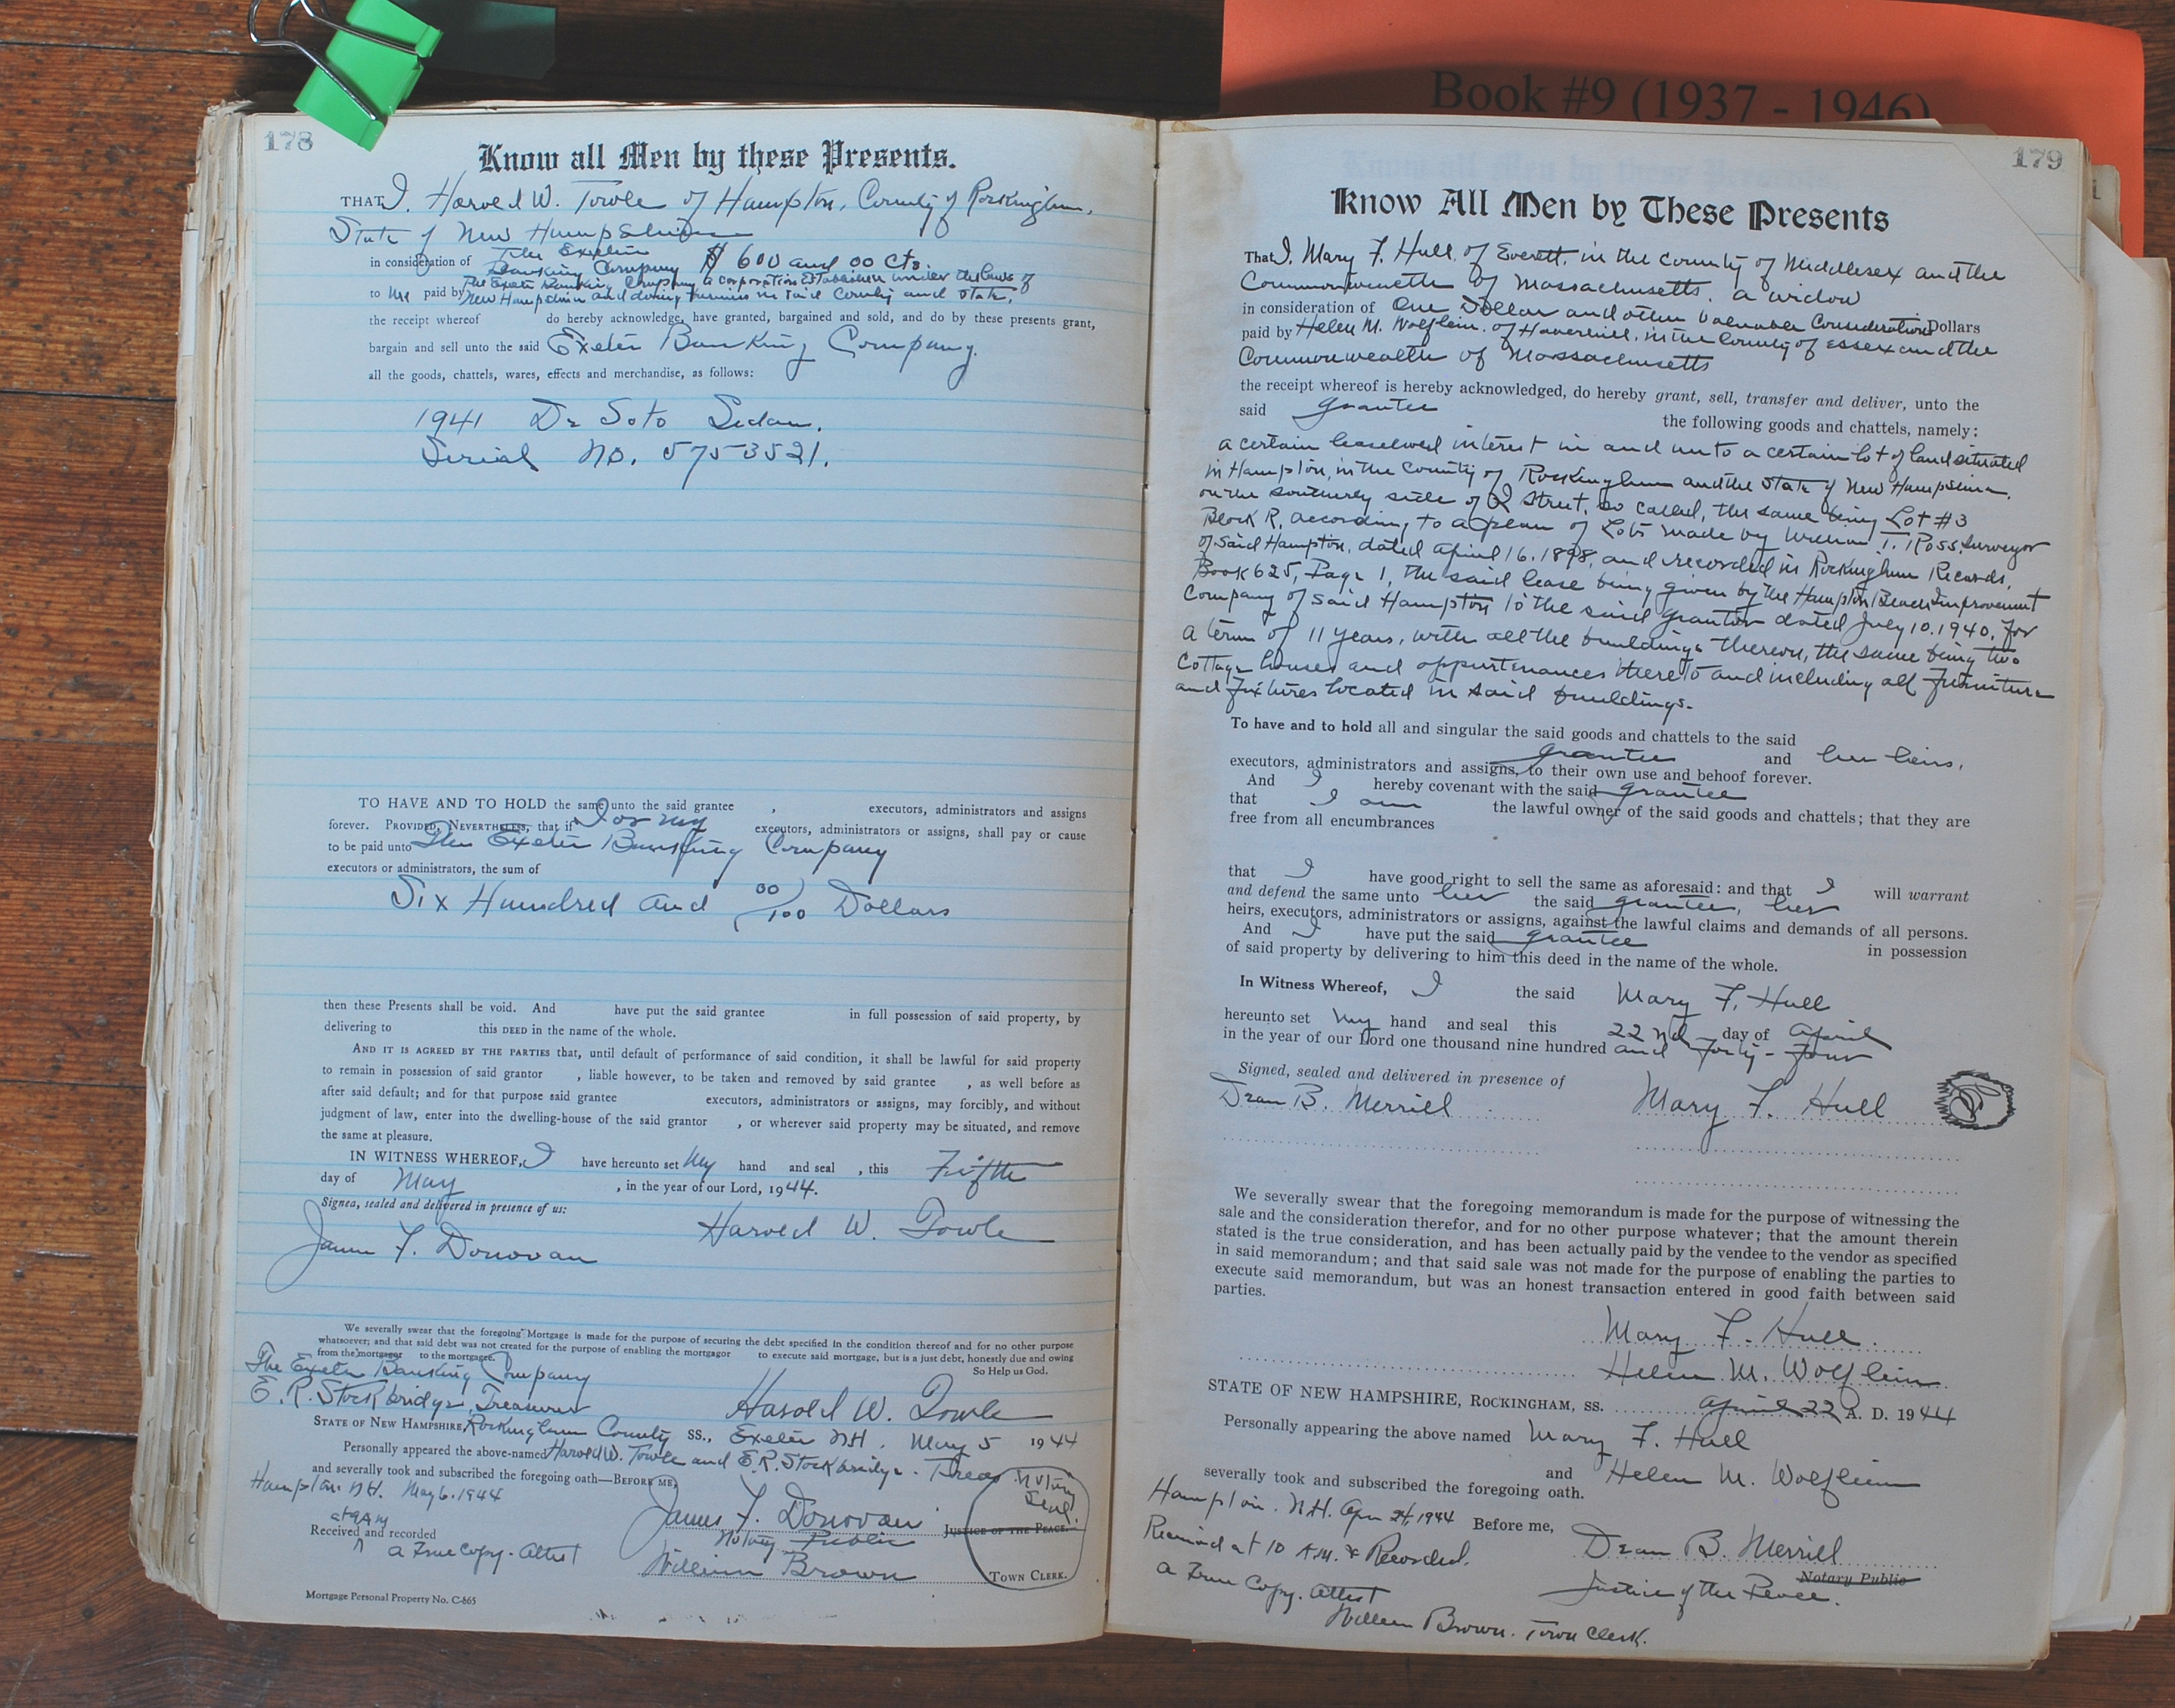 Book #9 (1937 - 1946)
178
Know all Men by these Presents.
THAT I, Harold W. Towle of Hampton, County of Rockingham,
State of New Hampshire
in consideration of The Exeter Banking Company $ 600 and 00 cts.
to me paid by The Exeter Banking Company a corporation established under the laws of
New Hampshire and doing business in said County and State,
the receipt whereof do hereby acknowledge, have granted, bargained and sold, and do by these presents grant,
bargain and sell unto the said Exeter Banking Company.
all the goods, chattels, wares, effects and merchandise, as follows:
1941 De Soto Sedan.
Serial No. 5753521.
TO HAVE AND TO HOLD the same unto the said grantee , executors, administrators and assigns
forever. PROVIDED, NEVERTHELESS, that if I or my executors, administrators or assigns, shall pay or cause
to be paid unto The Exeter Banking Company
executors or administrators, the sum of
Six Hundred and 00/100 Dollars
then these Presents shall be void. And have put the said grantee in full possession of said property, by
delivering to this DEED in the name of the whole.
AND IT IS AGREED BY THE PARTIES that, until default of performance of said condition, it shall be lawful for said property
to remain in possession of said grantor , liable however, to be taken and removed by said grantee , as well before as
after said default; and for that purpose said grantee executors, administrators or assigns, may forcibly, and without
judgment of law, enter into the dwelling-house of the said grantor , or wherever said property may be situated, and remove
the same at pleasure.
IN WITNESS WHEREOF, I have hereunto set my hand and seal , this Fifth
day of May , in the year of our Lord, 1944.
Signed, sealed and delivered in presence of us:
Harold W. Towle
James F. Donovan
We severally swear that the foregoing Mortgage is made for the purpose of securing the debt specified in the condition thereof and for no other purpose
whatsoever; and that said debt was not created for the purpose of enabling the mortgagor to execute said mortgage, but is a just debt, honestly due and owing
from the mortgagor to the mortgagee. So Help us God.
The Exeter Banking Company
E. R. Stockbridge, Treasurer Harold W. Towle
STATE OF NEW HAMPSHIRE, Rockingham County SS., Exeter N.H. May 5 1944
Personally appeared the above-named Harold W. Towle and E. R. Stockbridge. Treas
and severally took and subscribed the foregoing oath—BEFORE ME,
Notary Seal.
Hampton N.H. May 6. 1944
at 9 AM
James F. Donovan JUSTICE OF THE PEACE.
Received and recorded Notary Public
a True Copy. Attest William Brown TOWN CLERK.
Mortgage Personal Property No. C-865
179
Know All Men by These Presents
That I, Mary F. Hull, of Everett, in the county of Middlesex and the
Commonwealth of Massachusetts, a widow
in consideration of One Dollar and other valuable Considerations Dollars
paid by Helen M. Wolflein, of Haverhill, in the County of Essex and the
Commonwealth of Massachusetts
the receipt whereof is hereby acknowledged, do hereby grant, sell, transfer and deliver, unto the
said grantee the following goods and chattels, namely:
a certain leasehold interest in and unto a certain lot of land situated
in Hampton, in the County of Rockingham and the State of New Hampshire,
on the southerly side of Q Street, so called, the same being Lot #3
Block R, according to a plan of Lots made by William T. Ross, Surveyor
of said Hampton, dated April 16, 1898, and recorded in Rockingham Records,
Book 625, Page 1, the said lease being given by the Hampton Beach Improvement
Company of said Hampton to the said grantor dated July 10, 1940, for
a term of 11 years, with all the buildings thereon, the same being two
cottage houses and appurtenances thereto and including all furniture
and fixtures located in said buildings.
To have and to hold all and singular the said goods and chattels to the said
grantee and her heirs,
executors, administrators and assigns, to their own use and behoof forever.
And I hereby covenant with the said grantee
that I am the lawful owner of the said goods and chattels; that they are
free from all encumbrances
that I have good right to sell the same as aforesaid: and that I will warrant
and defend the same unto her the said grantee, her
heirs, executors, administrators or assigns, against the lawful claims and demands of all persons.
And I have put the said grantee in possession
of said property by delivering to him this deed in the name of the whole.
In Witness Whereof, I the said Mary F. Hull
hereunto set my hand and seal this 22nd day of April
in the year of our Lord one thousand nine hundred and Forty-Four
Signed, sealed and delivered in presence of
Dean B. Merrill Mary F. Hull
We severally swear that the foregoing memorandum is made for the purpose of witnessing the
sale and the consideration therefor, and for no other purpose whatever; that the amount therein
stated is the true consideration, and has been actually paid by the vendee to the vendor as specified
in said memorandum; and that said sale was not made for the purpose of enabling the parties to
execute said memorandum, but was an honest transaction entered in good faith between said
parties.
Mary F. Hull
Helen M. Wolflein
STATE OF NEW HAMPSHIRE, ROCKINGHAM, SS. April 22 A. D. 1944
Personally appearing the above named Mary F. Hull
and Helen M. Wolflein
severally took and subscribed the foregoing oath.
Hampton. N.H. Apr 24, 1944 Before me,
Received at 10 A.M. & Recorded. Dean B. Merrill
Notary Public
a True Copy. Attest Justice of the Peace.
William Brown. Town Clerk.